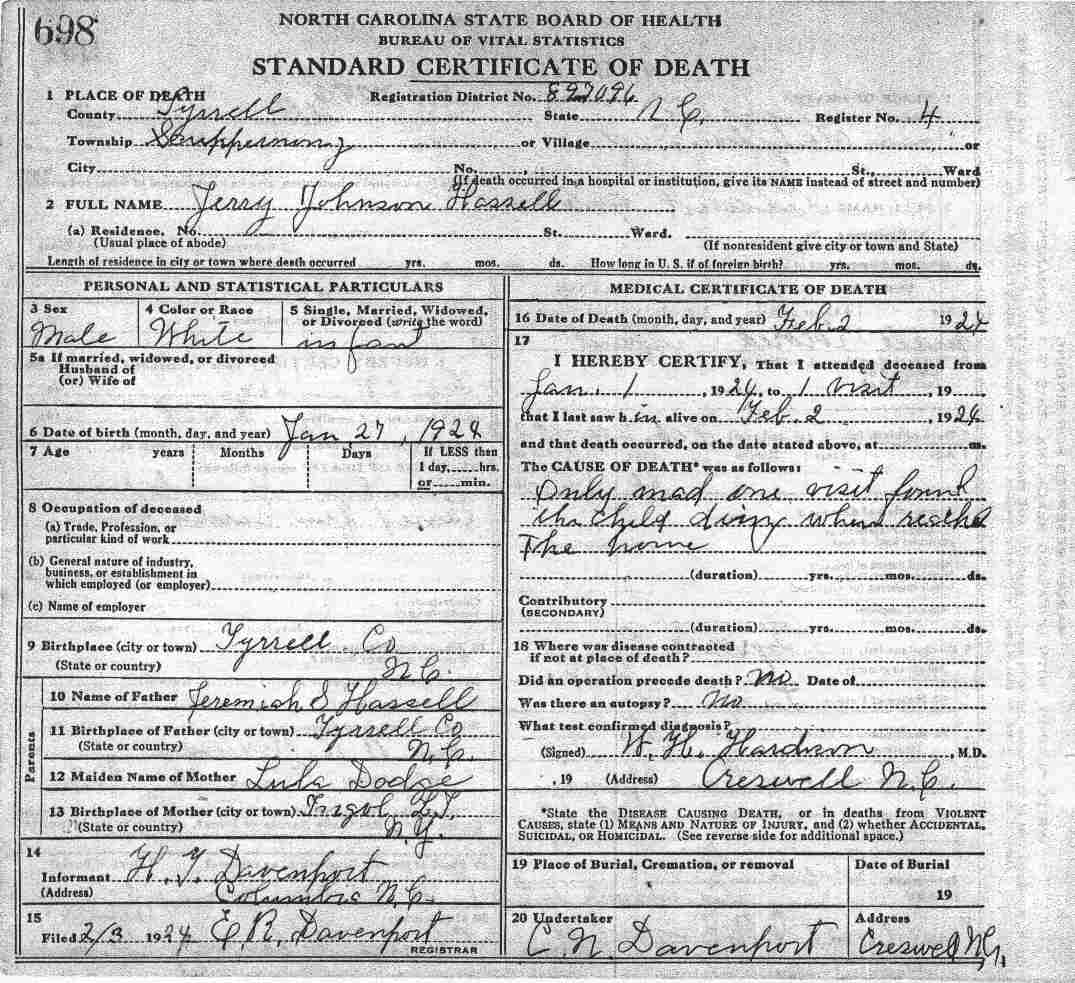 698
NORTH CAROLINA STATE BOARD OF HEALTH
BUREAU OF VITAL STATISTICS
STANDARD CERTIFICATE OF DEATH
1 PLACE OF DEATH Registration District No. 897096
County Tyrrell State N.C. Register No. 4
Township Scuppernong or Village or
City No. St., Ward
(If death occurred in a hospital or institution, give its NAME instead of street and number)
2 FULL NAME Jerry Johnson Hassell
(a) Residence. No. St. Ward.
(Usual place of abode) (If nonresident give city or town and State)
Length of residence in city or town where death occurred yrs. mos. ds. How long in U. S. if of foreign birth? yrs. mos. ds.
PERSONAL AND STATISTICAL PARTICULARS
3 Sex
Male
4 Color or Race
White
5 Single, Married, Widowed,
or Divorced (write the word)
infant
5a If married, widowed, or divorced
Husband of
(or) Wife of
6 Date of birth (month, day, and year) Jan 27, 1924
7 Age years Months Days If LESS then
1 day, hrs.
or min.
8 Occupation of deceased
(a) Trade, Profession, or
particular kind of work
(b) General nature of industry,
business, or establishment in
which employed (or employer)
(c) Name of employer
9 Birthplace (city or town) Tyrrell Co
(State or country) N.C.
Parents
10 Name of Father Jeremiah S Hassell
11 Birthplace of Father (city or town) Tyrrell Co
(State or country) N.C.
12 Maiden Name of Mother Lula Dodge
13 Birthplace of Mother (city or town)
(State or country) N.Y.
14
Informant H. J. Davenport
(Address) Columbia N.C.
15
Filed 2/3 1924 E R. Davenport
REGISTRAR
MEDICAL CERTIFICATE OF DEATH
16 Date of Death (month, day, and year) Feb. 2 1924
17
I HEREBY CERTIFY, That I attended deceased from
Jan. 1, 1924, to 1 visit, 19
that I last saw h im alive on Feb. 2 1924
and that death occurred, on the date stated above, at m.
The CAUSE OF DEATH* was as follows:
Only mad one visit found
the child diing when reached
The home
(duration) yrs. mos. ds.
Contributory
(SECONDARY)
(duration) yrs. mos. ds.
18 Where was disease contracted
if not at place of death?
Did an operation precede death? no Date of
Was there an autopsy? no
What test confirmed diagnosis?
(Signed) W. H. Hardison, M.D.
, 19 (Address) Creswell N.C.
*State the DISEASE CAUSING DEATH, or in deaths from VIOLENT
CAUSES, state (1) MEANS AND NATURE OF INJURY, and (2) whether ACCIDENTAL,
SUICIDAL, OR HOMICIDAL. (See reverse side for additional space.)
19 Place of Burial, Cremation, or removal
Date of Burial
19
20 Undertaker
C. N. Davenport
Address
Creswell N.C.